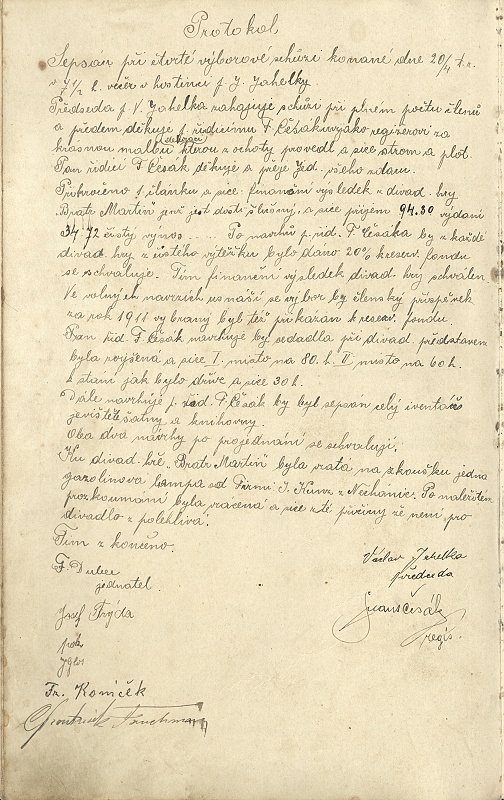 Protokol
Sepsán při čtvrté výborové schůzi konané dne 20/4 t.r.
v ¾ 1/2 h. večer v hostinci p. J. Jahelky.
Předseda p. V. Jahelka zahajuje schůzi při plném počtu členů
a předem děkuje p. řídícímu F. Čišákovi jako regiserovi za
krásnou malbu dekorací kterou z ochoty provedl a sice strom a plot.
Pan řídící F. Čišák děkuje a přeje Jed. všeho zdaru.
Přikročeno 1. článku a sice: finanční výsledek z divad. hry
„Bratr Martin" jenž jest dosti slušný, a sice příjem 94.30 vydání
34.72 čistý výnos . . . . Po navrhu p. říd. F. Čišáka by z každé
divad. hry z čistého výtěžku bylo dáno 20% k reserv. fondu
se schvaluje. Tím finanční výsledek divad. hry schválen
Ve volných navrzích usnáší se výbor by členský příspěvek
za rok 1911 vybraný byl též přikázan k reserv. fondu.
Pan říd. F. Čišák navrhuje by sedadla při divad. představení
byla zvýšená a sice I. místo na 80. h. II místo na 60 h.
k stání jak bylo dříve a sice 30 h.
Dále navrhuje p. říd. F. Čišák by byl sepsán celý inventář
jeviště šatny a knihovny.
Oba dva navrhy po projednání se schvalují.
Ku divad. hře „Bratr Martin" byla vzata na zkoušku jedna
gazolinova lampa od Firmi J. Kunz z Nechanic. Po naležitém
prozkoumání byla vrácena a sice z té příčiny že není pro
divadlo spolehlivá.
Tím skončeno.
F. Dubec
jednatel.
Václav Jehelka
předseda
Josef Frýda
pok.
regis.
Fr. Koníček